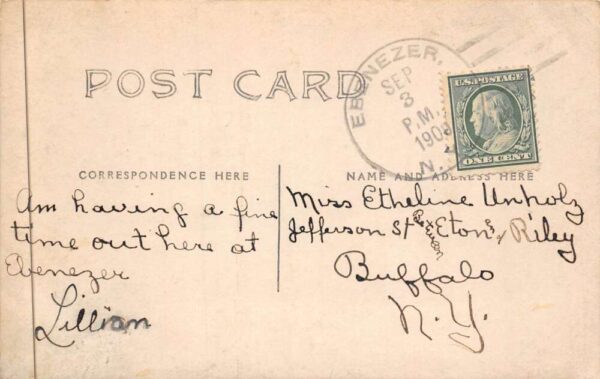 POST CARD
EBENEZER,
SEP
3
P.M.
1909
N.
U.S. POSTAGE
ONE CENT
CORRESPONDENCE HERE
NAME AND ADDRESS HERE
Am having a fine
time out here at
Ebenezer
Lillian
Miss Etheline Unholz
Jefferson St Eton Riley
Buffalo
N.Y.